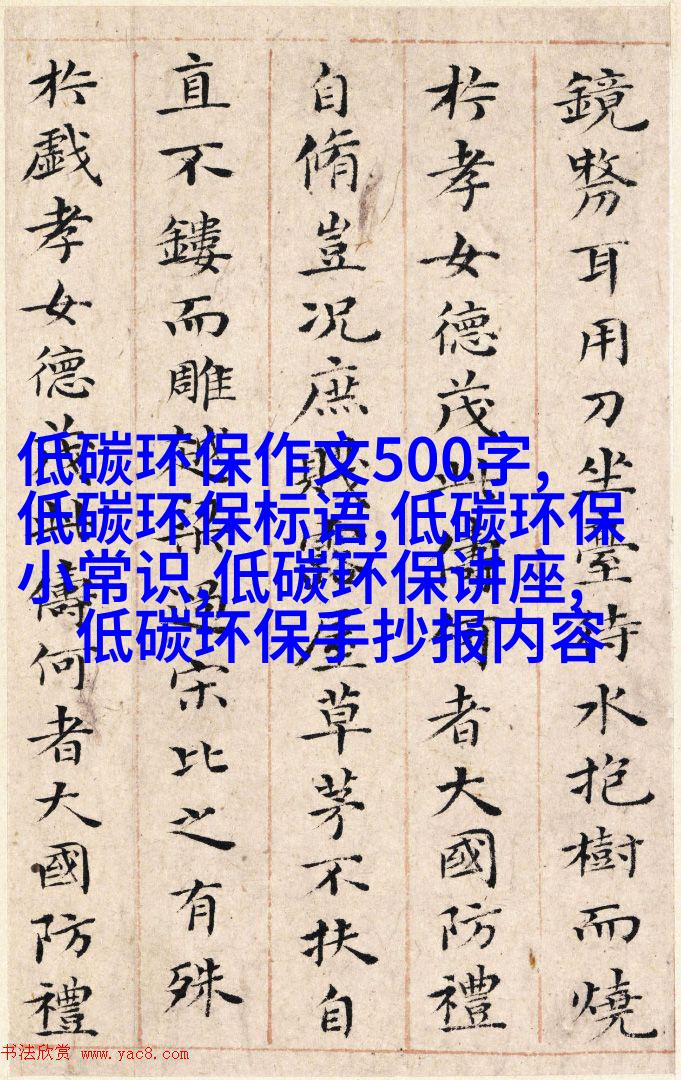 鏡剺耳用刀坐臺待水抱樹而燒
於孝女德茂此儔何者大國防禮
自脩豈況庶賤露屋草茅不扶自
直不鏤而雕越梁過宋比之有殊
於戲孝女德茂此儔何者大國防禮
低碳环保作文500字,
低碳环保标语,低碳环保
小常识,低碳环保讲座,
低碳环保手抄报内容
书法欣赏 www.yac8.com